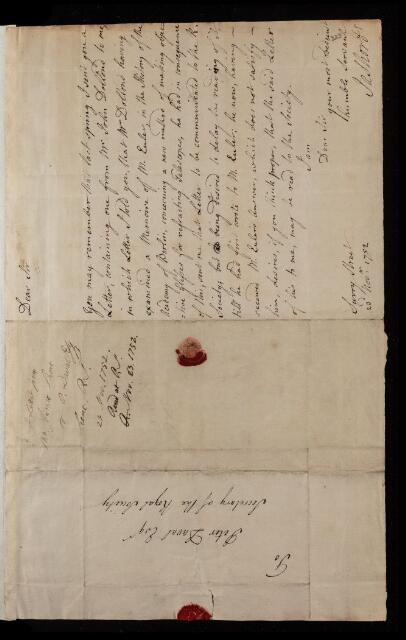 Dear Sir
You may remember that last Spring I sent you a
Letter, containing one from Mr John Dollond to me,
in which Letter I told you, that Mr Dollond having
examined a Memoire of M. Euler, in the History of the
Academy of Berlin, concerning a new method of making object
Glasses for refracting Telescopes, he had in consequence
of this, sent me that Letter to be communicated to the R.
Society: but being desired to delay the reading of it,
till he had first wrote to M. Euler; he now, having
received M. Euler's Answer, which does not satisfy
him, desires, if you think proper, that the said Letter
of his to me, may be read to the Society.
I am
Dear Sir your most obedient
humble Servant
Ja. Short
Surry Street
20 Nov. 1752
Mr James Short
to P. Daval Esq
Secr. R. S.
Read at R. S.
Nov. 23. 1752.
To
Peter Daval Esqr
Secretary of the Royal Society